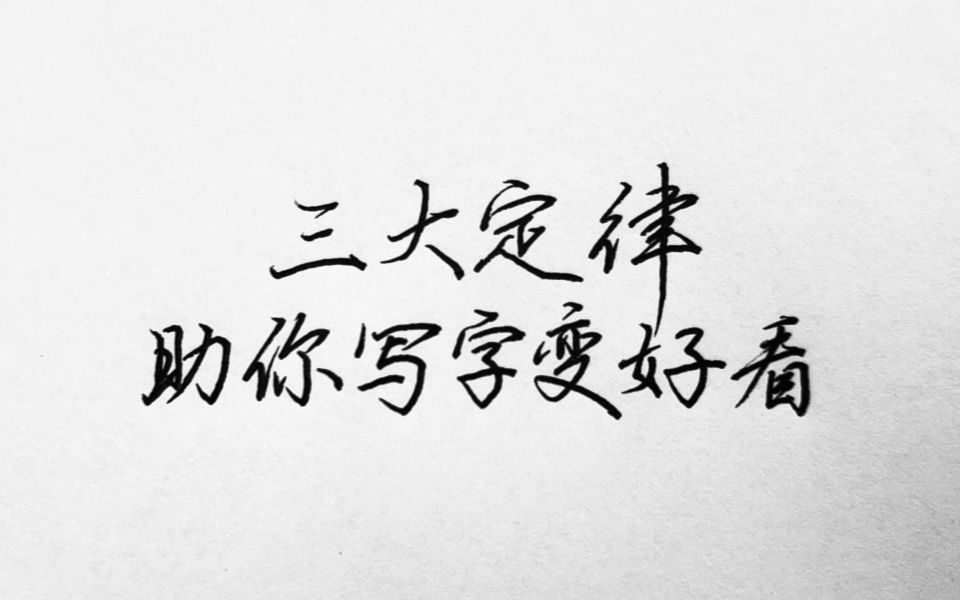 三大定律
助你写字变好看